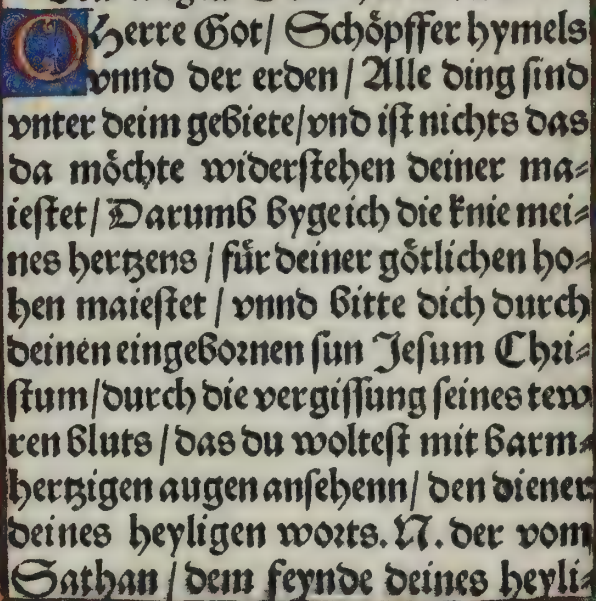 O Herre Got/ Schoͤpffer hymels
vnnd der erden / Alle ding sind
vnter deim gebiete/ vnd ist nichts das
da moͤchte widerstehen deiner ma⸗
iestet/ Darumb byge ich die knie mei⸗
nes hertzens / fuͤr deiner goͤtlichen ho⸗
hen maiestet / vnnd bitte dich durch
deinen eingebornen sun Jesum Chri⸗
stum/ durch die vergissung seines tew
ren bluts / das du woltest mit barm⸗
hertzigen augen ansehenn/ den diener
deines heyligen worts. N. der vom
Sathan / dem feynde deines heyli⸗